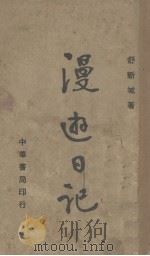 舒新城著
漫遊日記
中華書局印行
www.toutoushu.com